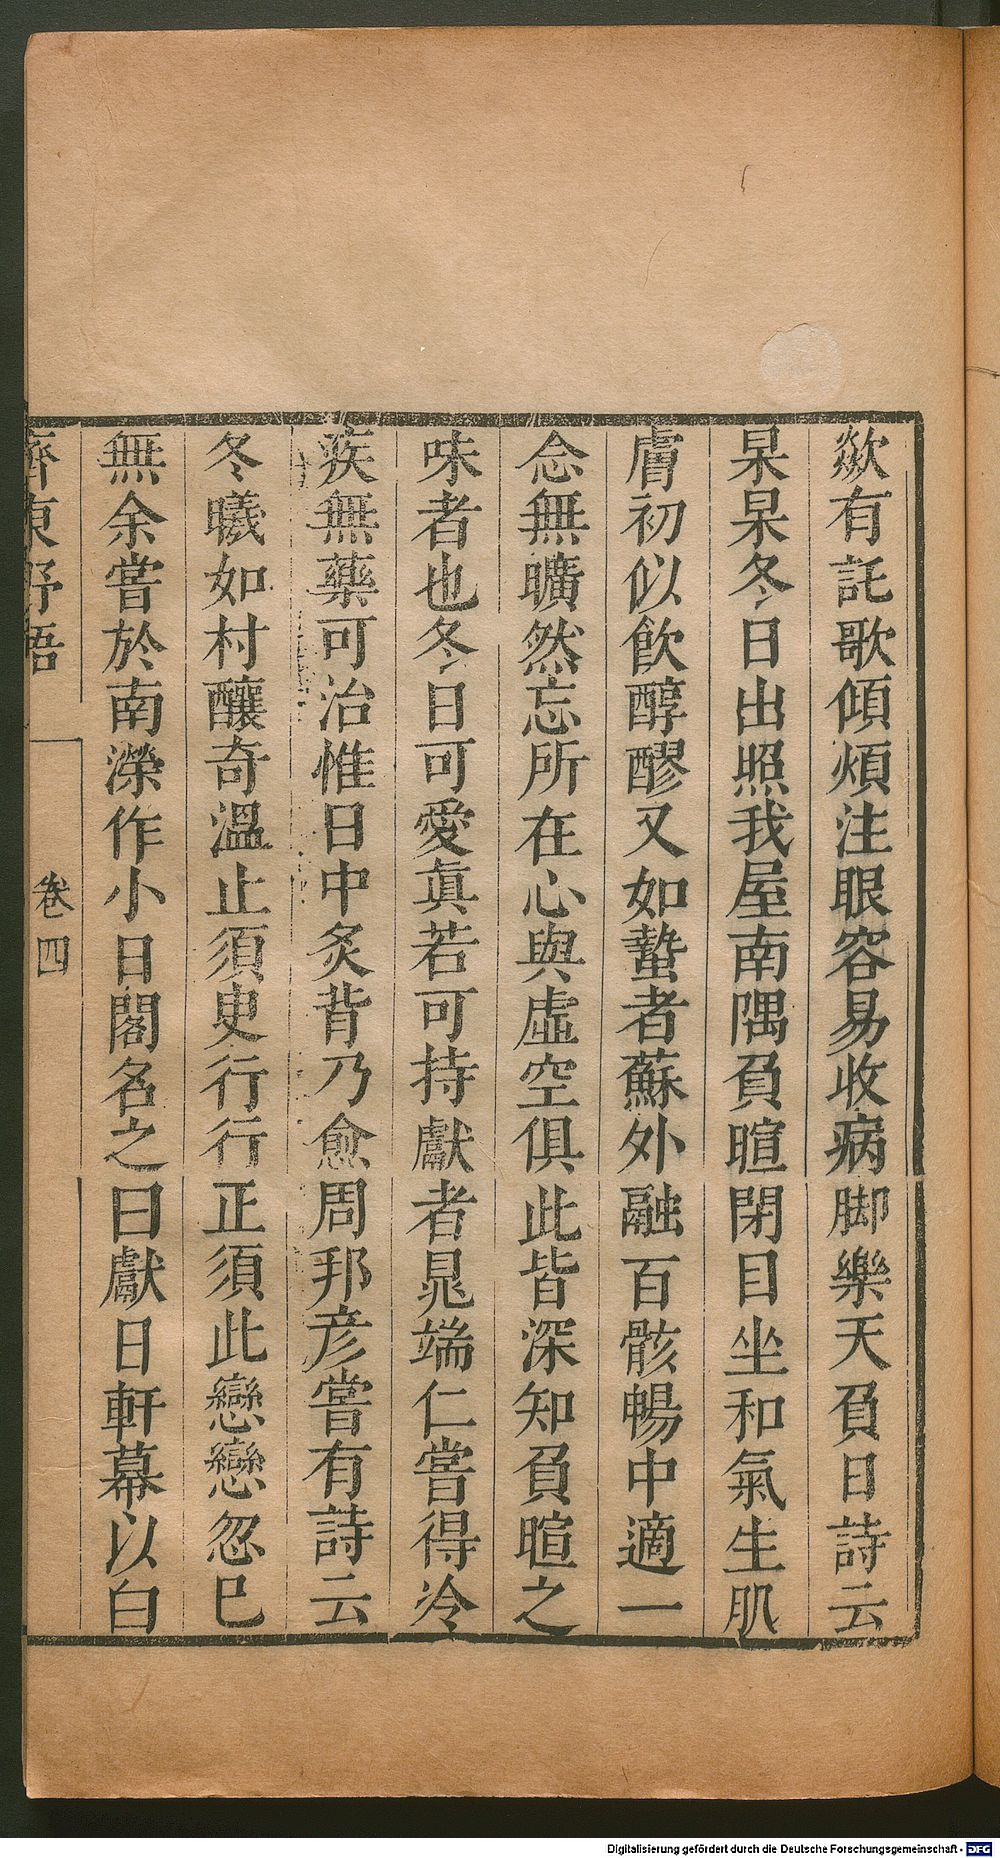 歘有託歌傾煩注眼容易收病脚樂天負日詩云
杲杲冬日出照我屋南隅負暄閉目坐和氣生肌
膚初似飲醇醪又如蟄者蘇外融百骸暢中適一
念無曠然忘所在心與虛空俱此皆深知負暄之
味者也冬日可愛眞若可持獻者晁端仁嘗得冷
疾無藥可治惟日中炙背乃愈周邦彥嘗有詩云
冬曦如村釀奇溫止須史行行正須此戀戀忽巳
無余嘗於南濼作小日閣名之曰獻日軒幕以白
齊東野語 卷四
Digitalisierung gefördert durch die Deutsche Forschungsgemeinschaft - DFG